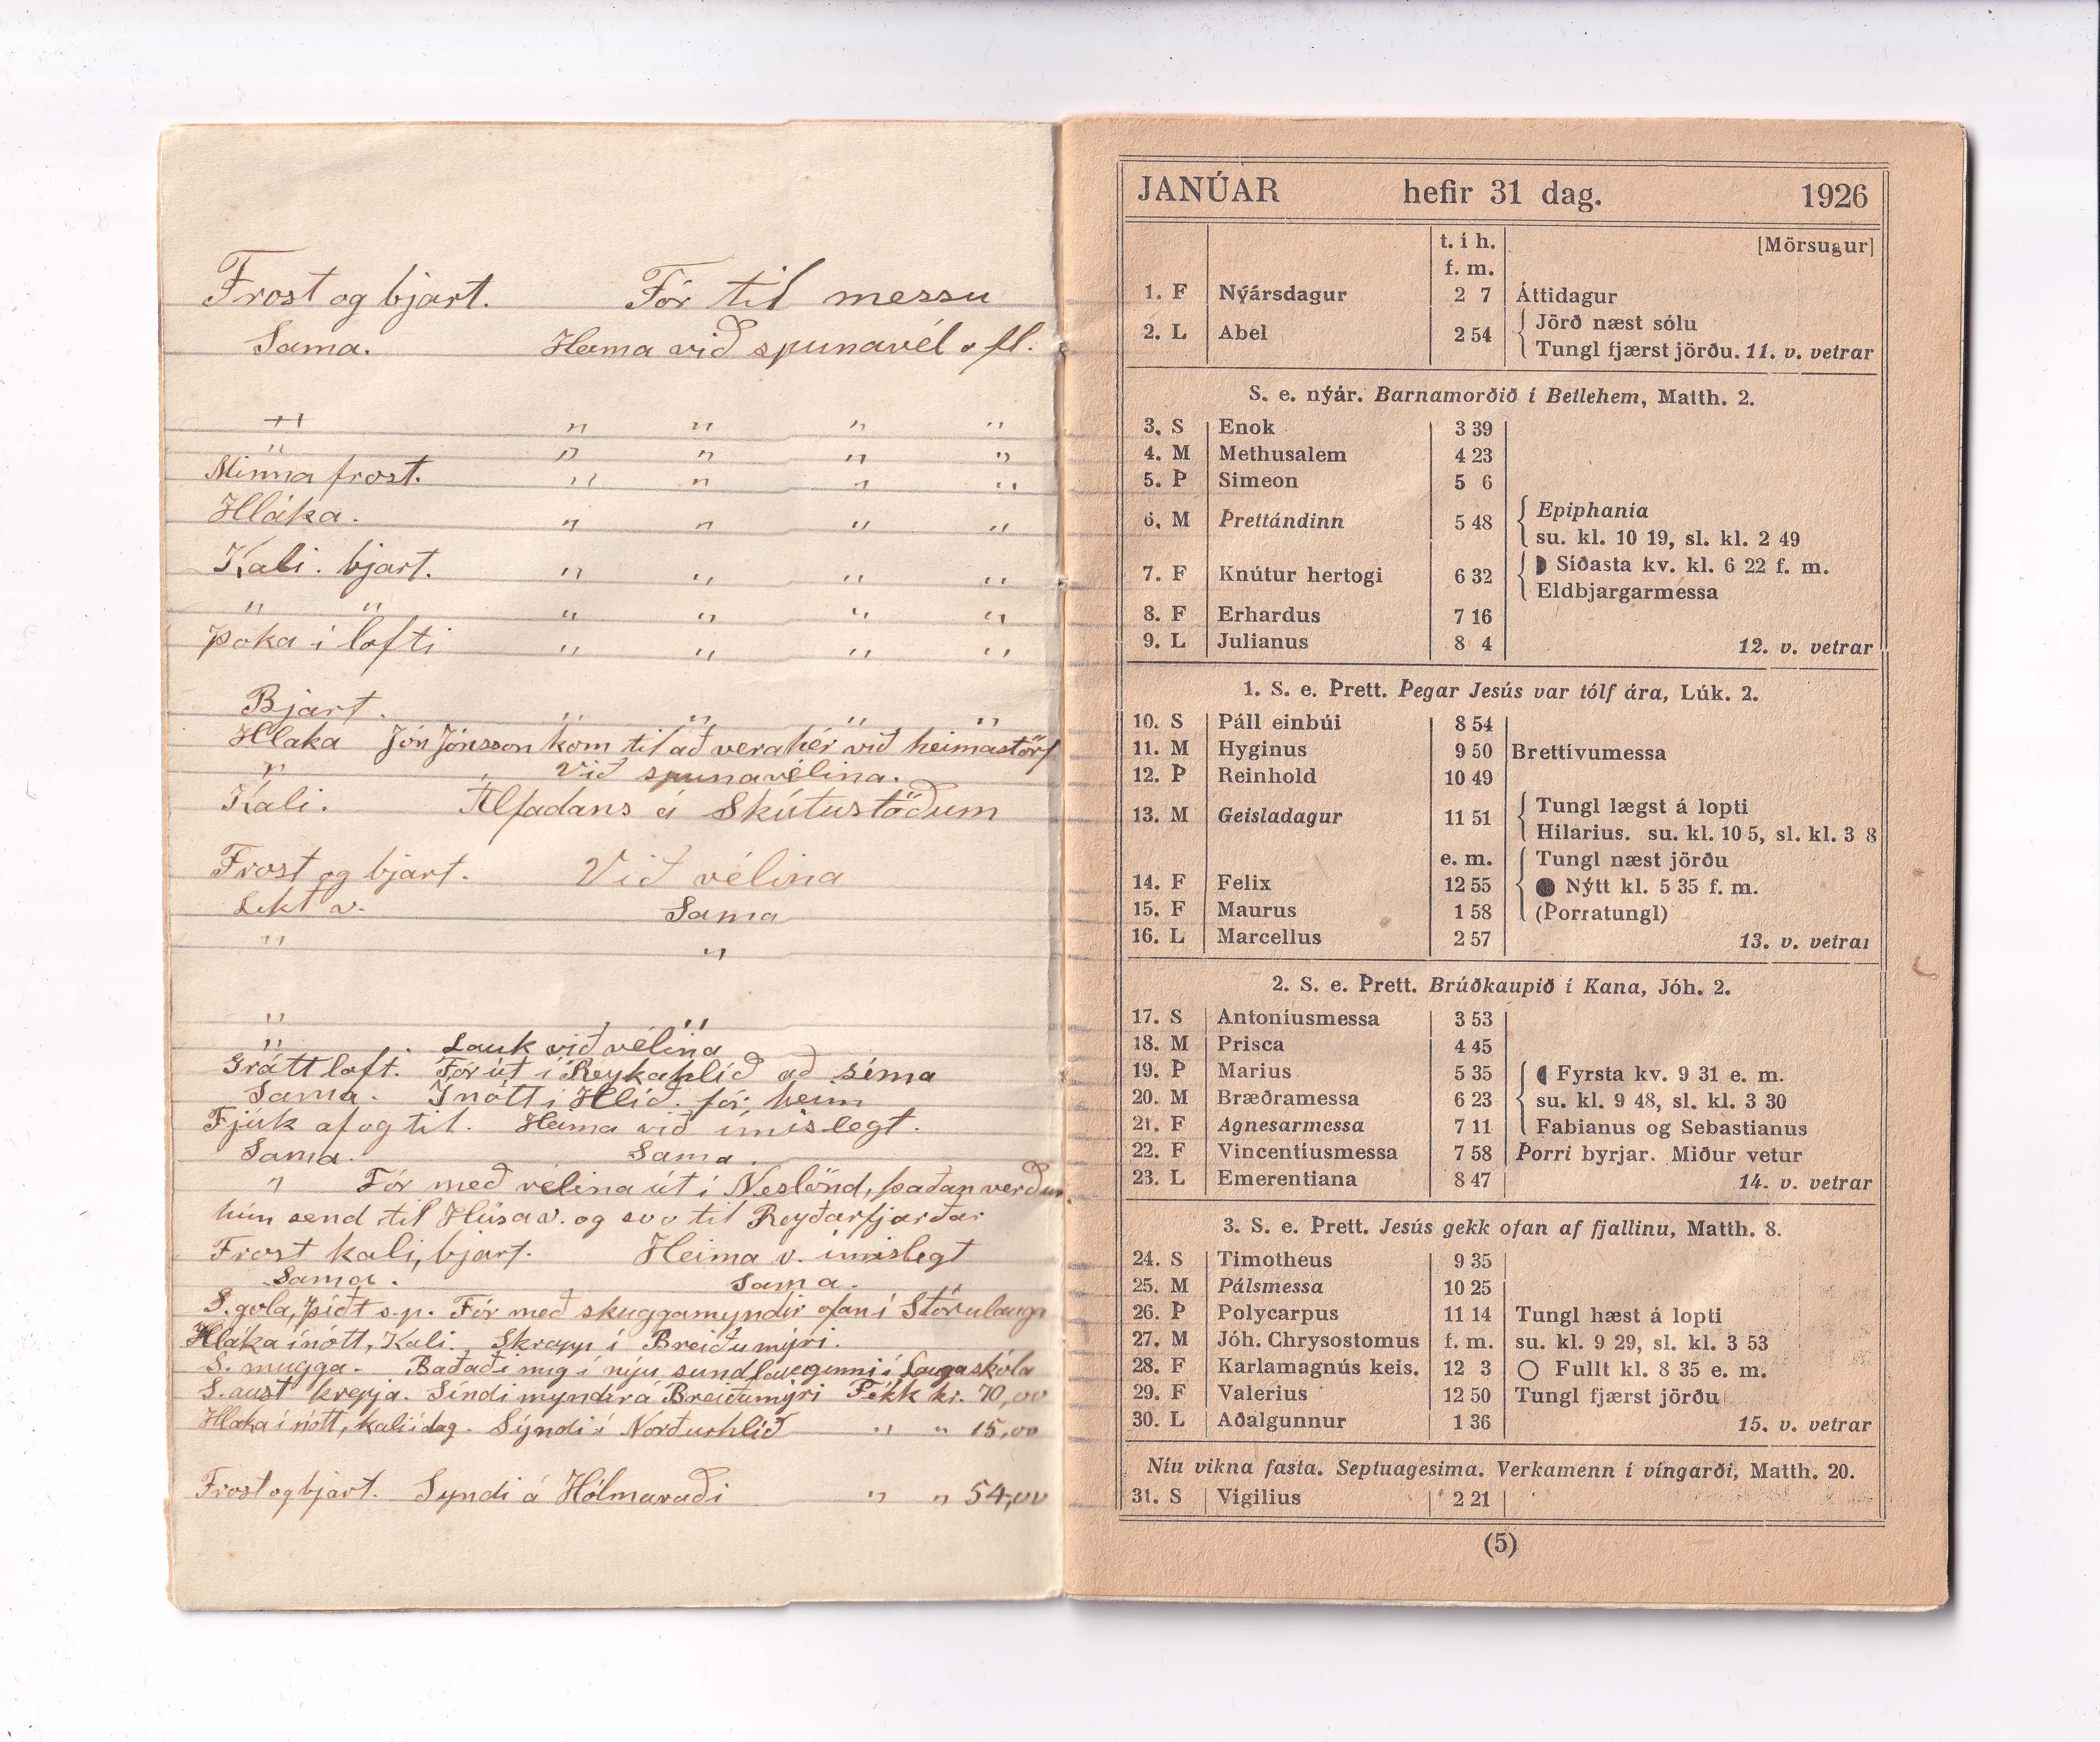 Frost og bjart. Fór til messu
Sama. Heima við spunavél o fl.
" " " " "
" " " " "
Minna frost. " " " "
Hláka. " " " "
Kali. bjart. " " " "
" " " " " "
Þoka í lofti " " " "
Bjart. " " " "
Hláka Jón Jónsson kom til að vera hér við heimastörf
" Við spunavélina.
Kali. Álfadans á Skútustöðum
Frost og bjart. Við vélina
Líkt v. Sama
" "
" "
" Lauk við vélina
Gráttloft. Fór út í Reykahlíð að síma
Sama. Í nótt í Hlíð. fór heim
Fjúk af og til. Heima við ímislegt.
Sama. Sama.
" Fór með vélina út í Neslönd, þaðan verður
hún send til Húsav. og svo til Reyðarfjarðar
Frost kali, bjart. Heima v. ímislegt
Sama. Sama.
S. gola, þíðt s.p. Fór með skuggamyndir ofan í Stórulauga
Hláka í nótt, Kali. Skrapp í Breiðumýri.
S. mugga. Baðaði mig í nýju sundlauginni í Laugaskóla
S. aust krepja. Síndi myndir á Breiðumýri Fékk kr. 70,00
Hláka í nótt, kali í dag. Sýndi í Norðurhlíð " " 15,00
Frost og bjart. Syndi á Hólmavaði " " 54,00
JANÚAR hefir 31 dag. 1926
t. í h. [Mörsugur]
f. m.
1. F Nýársdagur 2 7 Áttidagur
2. L Abel 2 54 Jörð næst sólu
Tungl fjærst jörðu. 11. v. vetrar
S. e. nýár. Barnamorðið í Betlehem, Matth. 2.
3. S Enok 3 39
4. M Methusalem 4 23
5. Þ Simeon 5 6
6. M Þrettándinn 5 48 Epiphania
su. kl. 10 19, sl. kl. 2 49
7. F Knútur hertogi 6 32 Síðasta kv. kl. 6 22 f. m.
Eldbjargarmessa
8. F Erhardus 7 16
9. L Julianus 8 4 12. v. vetrar
1. S. e. Þrett. Þegar Jesús var tólf ára, Lúk. 2.
10. S Páll einbúi 8 54
11. M Hyginus 9 50 Brettívumessa
12. Þ Reinhold 10 49
13. M Geisladagur 11 51 Tungl lægst á lopti
Hilarius. su. kl. 10 5, sl. kl. 3 8
e. m. Tungl næst jörðu
14. F Felix 12 55 Nýtt kl. 5 35 f. m.
15. F Maurus 1 58 (Þorratungl)
16. L Marcellus 2 57 13. v. vetrar
2. S. e. Þrett. Brúðkaupið í Kana, Jóh. 2.
17. S Antoníusmessa 3 53
18. M Prisca 4 45
19. Þ Marius 5 35 Fyrsta kv. 9 31 e. m.
20. M Bræðramessa 6 23 su. kl. 9 48, sl. kl. 3 30
21. F Agnesarmessa 7 11 Fabianus og Sebastianus
22. F Vincentíusmessa 7 58 Þorri byrjar. Miður vetur
23. L Emerentiana 8 47 14. v. vetrar
3. S. e. Þrett. Jesús gekk ofan af fjallinu, Matth. 8.
24. S Timotheus 9 35
25. M Pálsmessa 10 25
26. Þ Polycarpus 11 14 Tungl hæst á lopti
27. M Jóh. Chrysostomus f. m. su. kl. 9 29, sl. kl. 3 53
28. F Karlamagnús keis. 12 3 Fullt kl. 8 35 e. m.
29. F Valerius 12 50 Tungl fjærst jörðu
30. L Aðalgunnur 1 36 15. v. vetrar
Níu vikna fasta. Septuagesima. Verkamenn í víngarði, Matth. 20.
31. S Vigilius 2 21
(5)